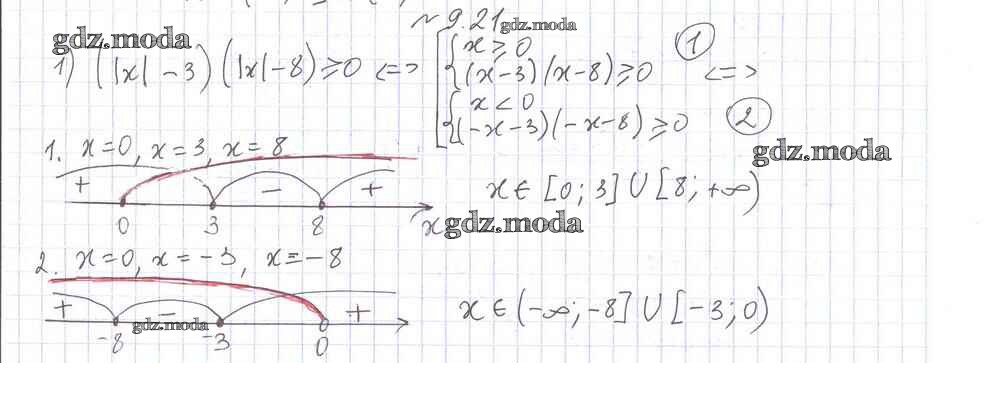 № 9.21 gdz.moda
gdz.moda
1) (|x| -3)(|x|-8) ≥ 0 <=> [ { x ≥ 0 (x-3)(x-8) ≥ 0 ① <=>
{ x < 0 (-x-3)(-x-8) ≥ 0 ②
gdz.moda
1. x=0, x=3, x=8
+ - +
0 3 8 x
gdz.moda
x ∈ [0; 3] ∪ [8; +∞)
2. x=0, x=-3, x=-8
+ - +
gdz.moda
-8 -3 0
x ∈ (-∞; -8] ∪ [-3; 0)